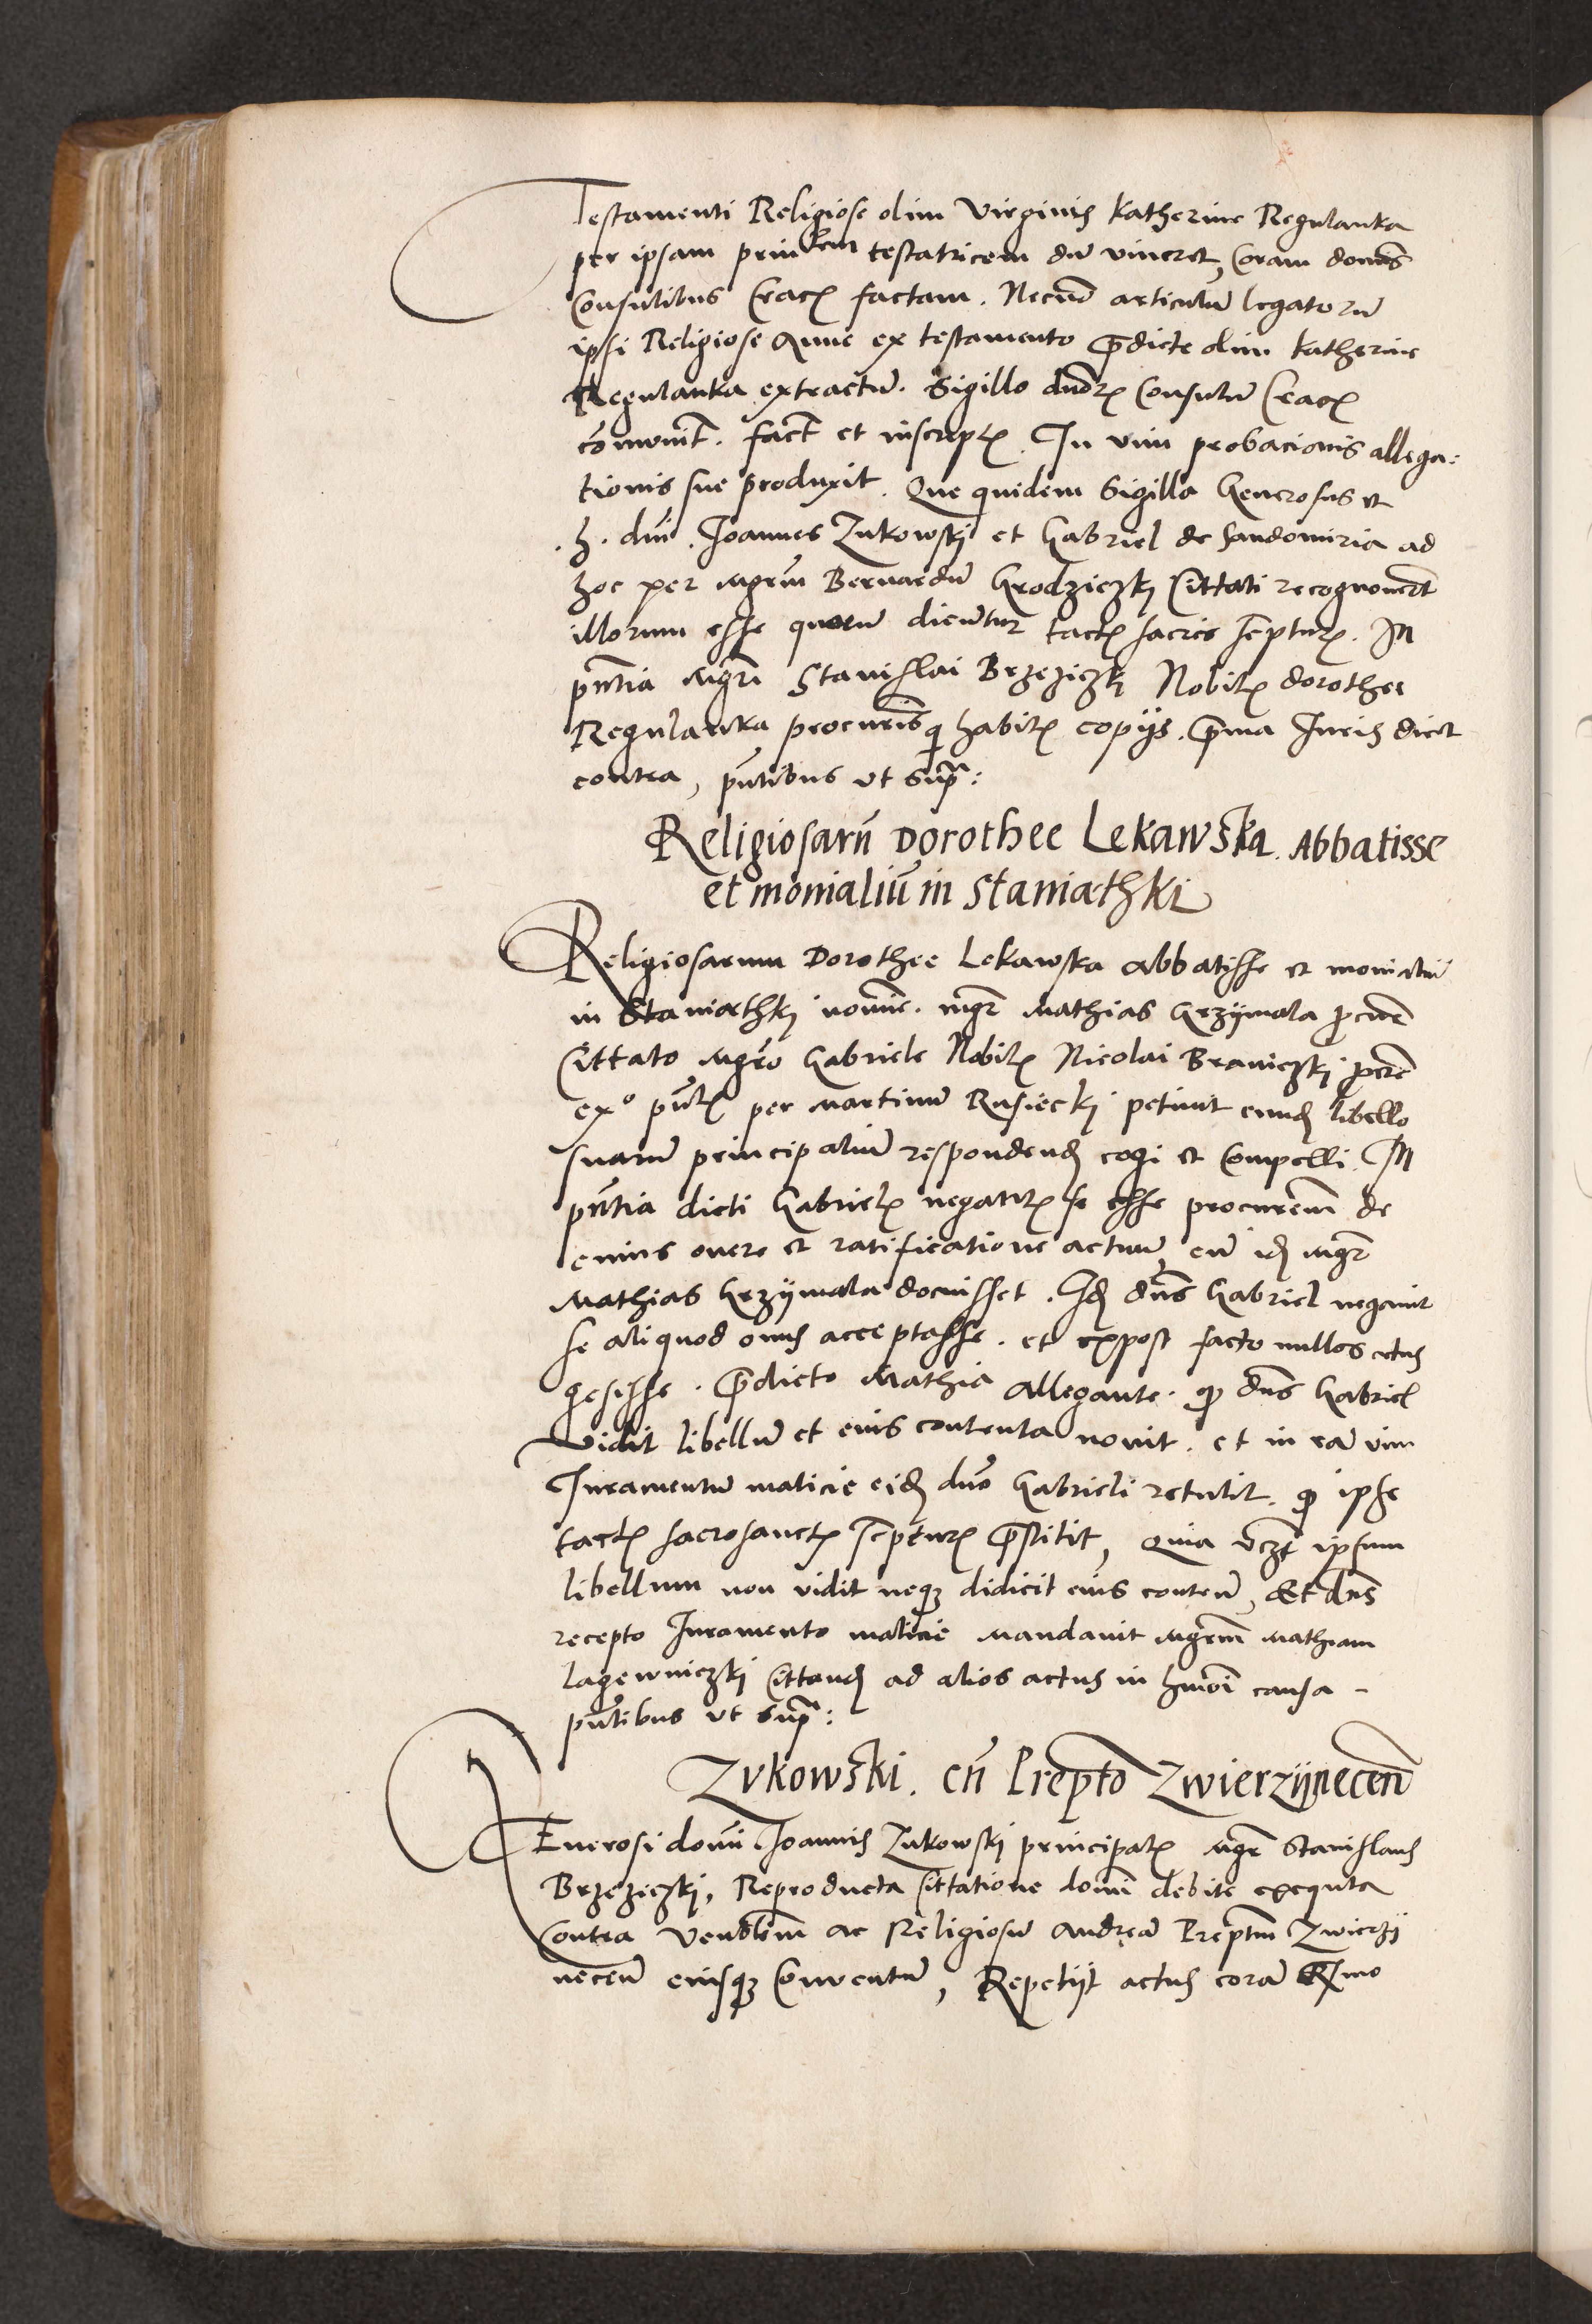 Testamenti Religiose olim Virginis Katherine Regulanka
per ipsam prin͞lem testatricem dū viueret, Coram domīs
Consulibus Crac͛ factam. Necnō articulū legatorū
ipsi Religiose Anne ex testamento p̄dicte olim Katherine
Regulanka extractū. Sigillo dn̄or͛ Consulū Crac͛
cōmunit. fact̄ et inscript͛. In vim probacionis allega:
tionis sue produxit. Que quidem Sigilla Generosus et
.h. dn̄i. Joannes Zukowskj et Gabriel de Sandomiria ad
hoc per Mgr̄m Bernardū Grodziczkj Cittati recognouer̄t
illorum esse quorū dicūtur tact͛ sacris sc̄riptur͛. In
pn̄tia Mgr̄i Stanislai Brzeziczkj Nobil͛ Dorothee
Regulanka procur̄is q habit͛ copijs. p̄ma Juris dict
contra, pn̄tibus vt supᵃ:
Religiosarū Dorothee Lekawska. Abbatisse
et monialiū in Staniathki
Religiosarum Dorothee Lekawska Abbatisse et monialiū
in Staniathkj noīne. mgr̄ Mathias Grzijmala p̄cur̄
Cittato Mgr̄o Gabriele Nobil͛ Nicolai Braniczkj p̄cur̄e
exº pn̄t͛ per Martinū Rusieckj petiuit eund͛ libello
suarū principaliū respondend͛ cogi et Compelli. In
pn̄tia dicti Gabriel͛ negant͛ se esse procur̄em de
cuius onere et ratificatione actuum, cū id͛ Mgr̄
Mathias Grzijmala docuisset. Id͛ dn̄s Gabriel negauit
se aliquod onus acceptasse. et expost facto nullos actus
gesisse. p̄dicto Mathia Allegante. q dn̄s Gabriel
vidit libellū et eius contenta nouit. et in eā vim
Juramentū malicie eid͛ dn̄o Gabrieli retulit. q ipse
tact͛ sacrosanct͛ sc̄riptur͛ p̄stitit, Quia vcz̄t ipsum
libellum non vidit neqȝ didicit eius contenū, Et dn̄s
recepto Juramento malicie Mandauit Mgr̄m Mathiam
Lagewniczkj Cittand͛ ad alios actus in hm̄oi causa -
pn̄tibus vt supᵃ:
Zvkowski. cū Prep̄to Zwierzijnecen̄
GEnerosi domī Joannis Zukowskj principal͛ Mgr̄ Stanislaus
Brzeziczkj, Reproducta Cittatione domī debite exequta
Contra Ven̄blem ac Religiosū Andreā Prep̄tm Zwierzij
necen̄ eiusqȝ Conuentū, Repetijt actus corā R̄mo